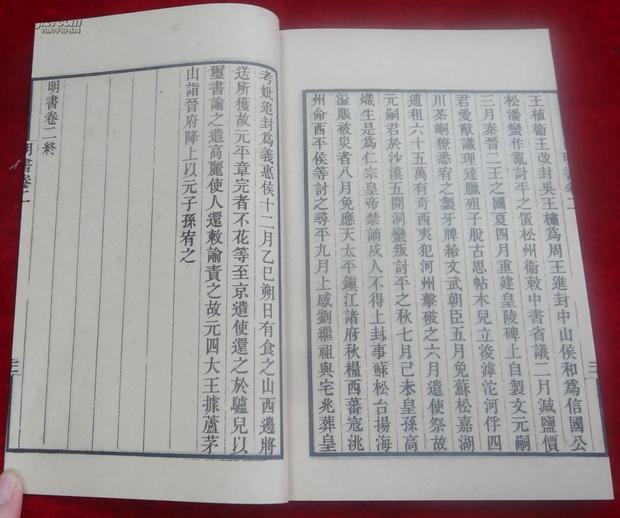 王植衞王改封吳王橚爲周王進封中山侯和爲信國公
松潘蠻作亂討平之置松州衞敕中書省議二月減鹽價
三月秦晉二王之國夏四月重建皇陵碑上自製文元嗣
君愛猷識理達臘殂子脫古思帖木兒立浚滹沱河俘四
川茶峒獠悉宥之製牙牌給文武朝臣五月免蘇松嘉湖
逋租六十五萬有奇西夷犯河州擊破之六月遣使祭故
元嗣君於沙漠五開洞蠻叛討平之秋七月己未皇孫高
熾生是爲仁宗皇帝禁謫戍人不得上封事蘇松台揚海
溢賑被災者八月免應天太平鎮江諸府秋糧西蕃寇洮
州命西平侯等討之尋平九月上感劉繼祖與宅兆葬皇
明書卷二
三
考妣追封爲義惠侯十二月乙巳朔日有食之山西邊將
送所獲故元平章完者不花等至京遣使還之於驢兒以
璽書諭之遣高麗使人還敕諭責之故元四大王據蘆茅
山詣晉府降上以元子孫宥之
明書卷二終
明書卷二
三